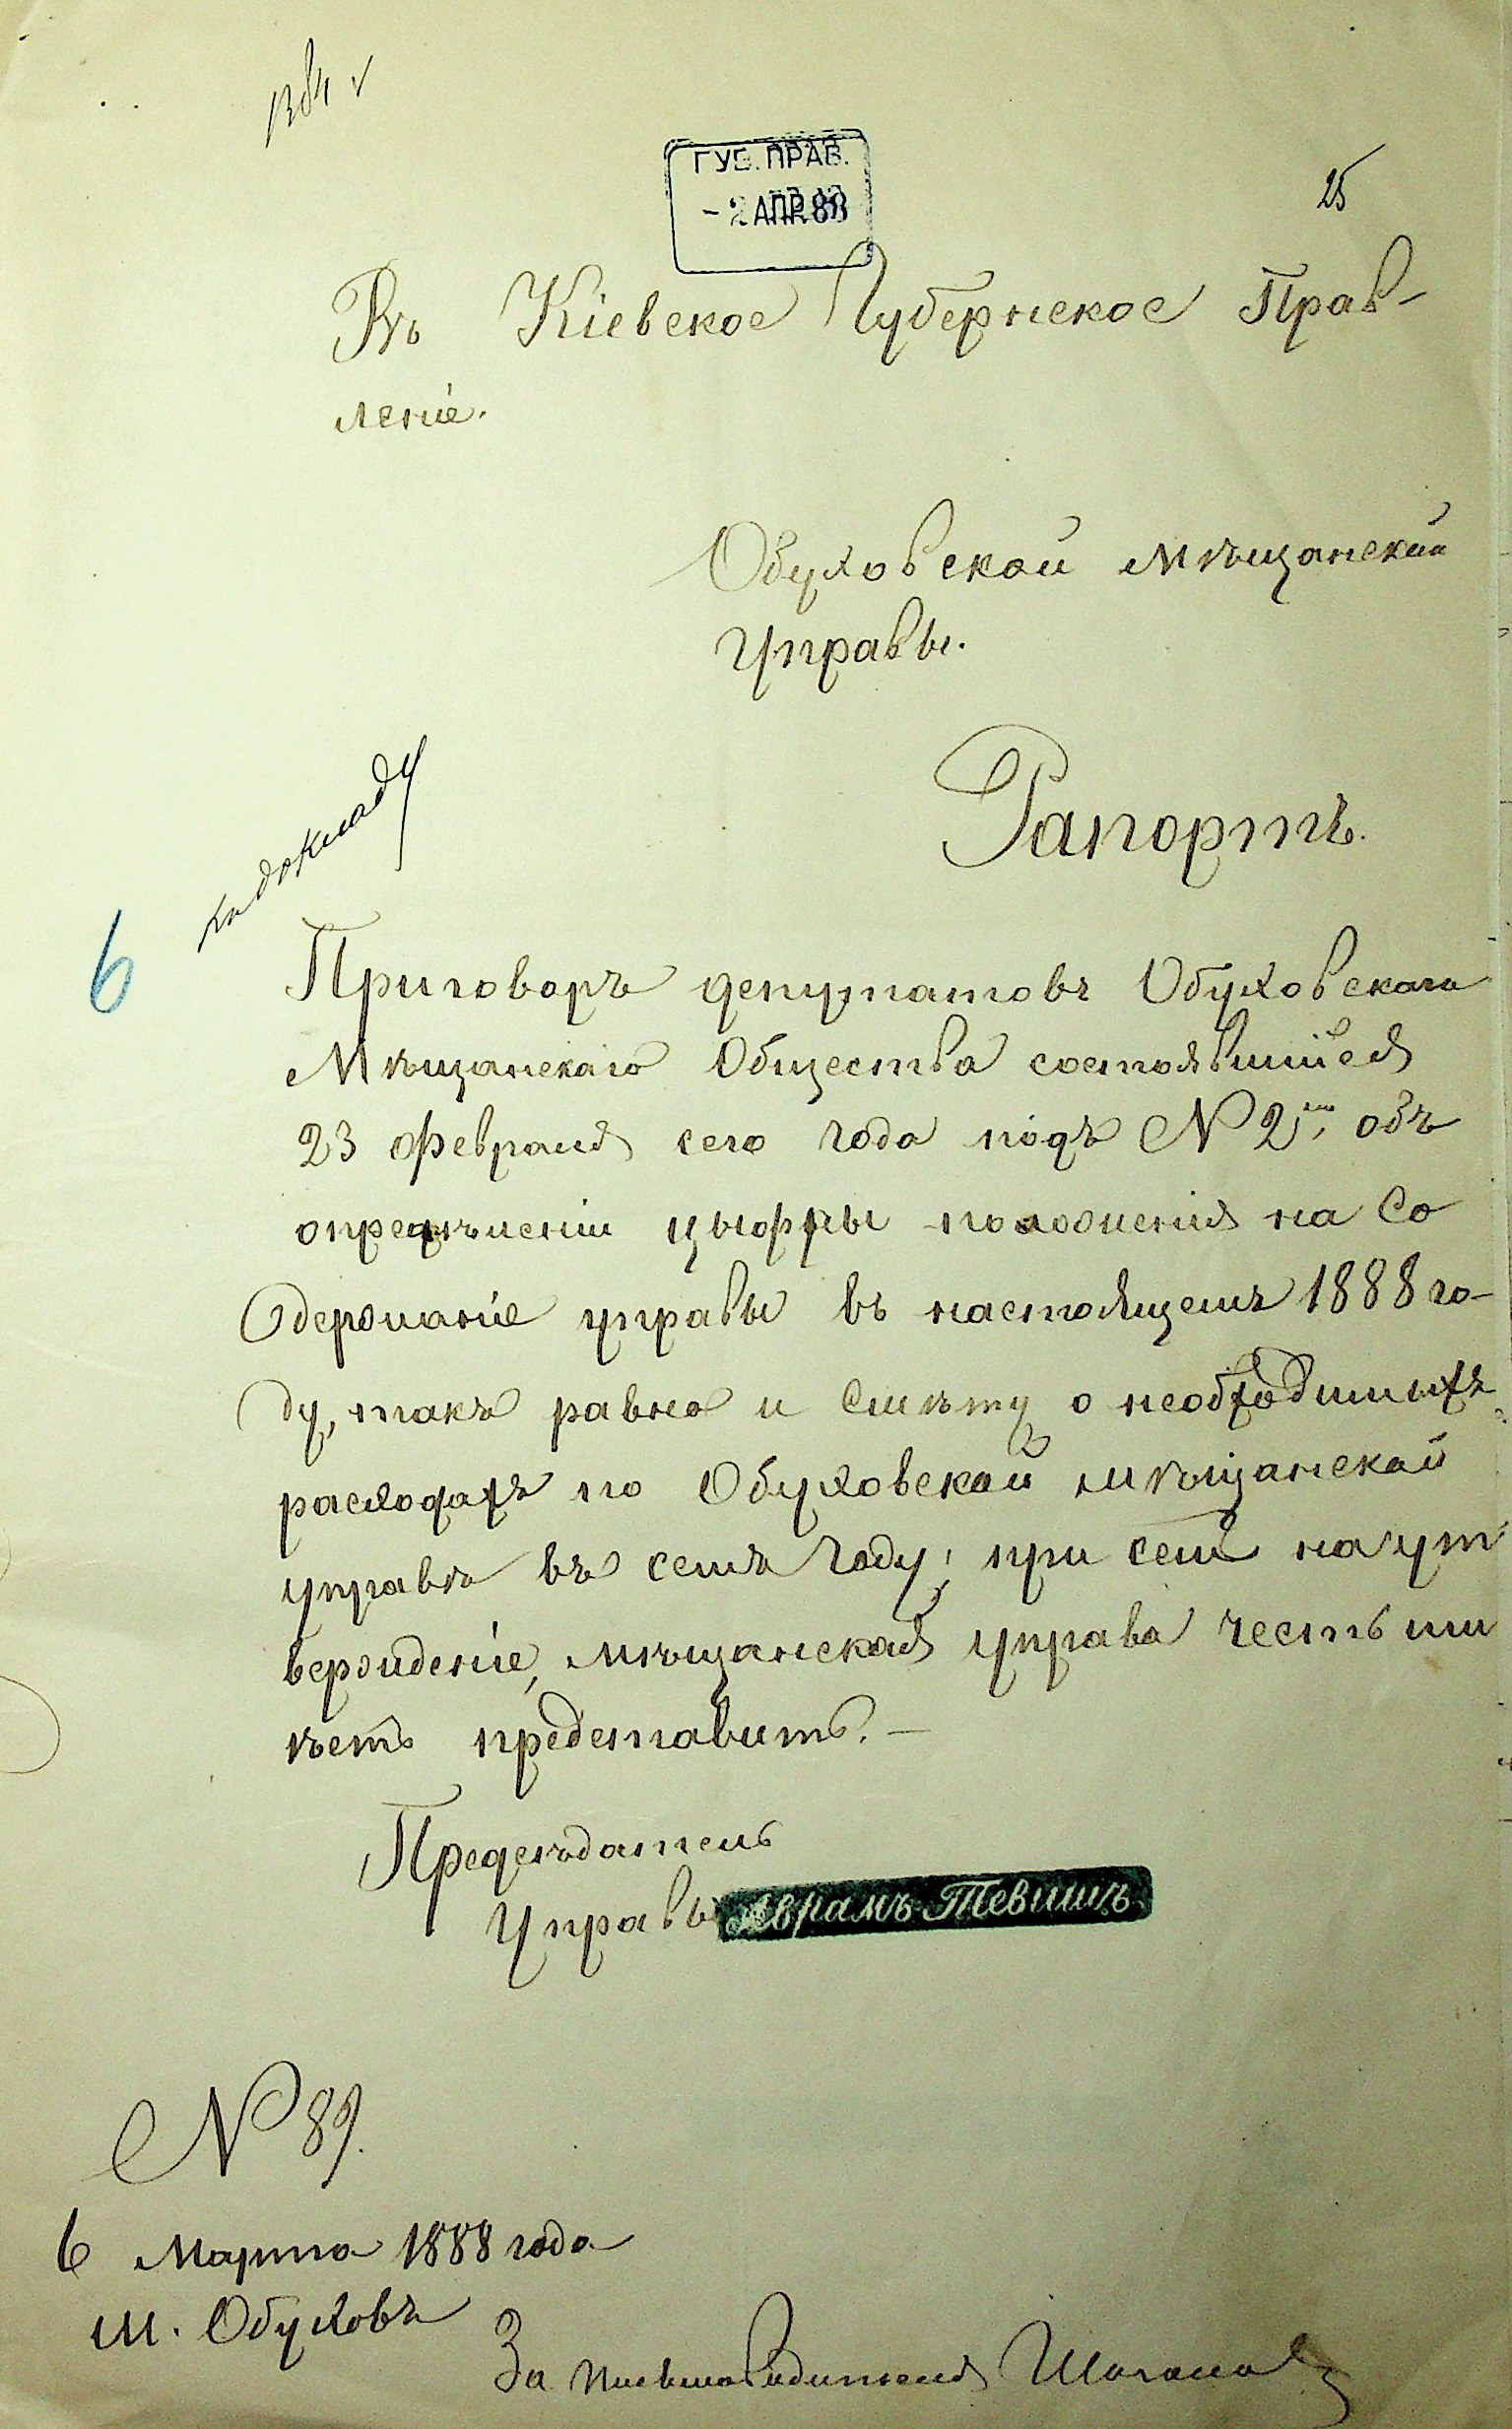 ГУБ. ПРАВ.
- 2 АПР. 88
25
Въ Кіевское Губернское Прав-
леніе.
Обуховской мѣщанской
Управы.
Рапортъ.
къ докладу
6
Приговоръ депутатовъ Обуховскаго
Мѣщанскаго Общества состоявшійся
23 февраля сего года подъ № 2мъ, объ
опредѣленіи цыфры положенія на Со
держаніе управы въ настоящемъ 1888 го-
ду, такъ равно и Смѣту о необходимыхъ
расходахъ по Обуховской мѣщанской
управѣ въ семъ году; при семъ на ут
вержденіе, мѣщанская управа честь им
ѣетъ представить. —
Предсѣдатель
Управы Аврамъ Тевишъ
№ 89.
6 Марта 1888 года
м. Обуховъ
За письмоводителя